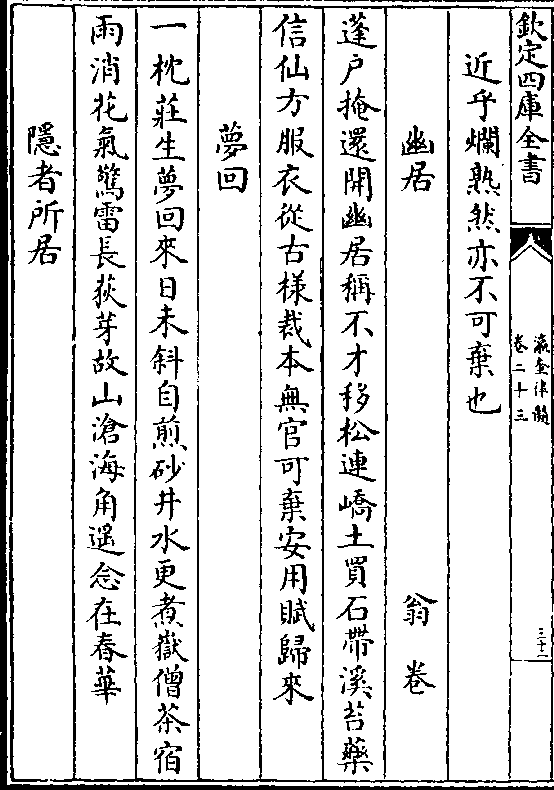 欽定四庫全書
瀛奎律髓
卷二十三
三十二
近乎爛熟然亦不可棄也
幽居
翁卷
蓬戶掩還開幽居稱不才移松連嶠土買石帶溪苔藥
信仙方服衣從古様裁本無官可棄安用賦歸來
夢回
一枕莊生夢回來日未斜自煎砂井水更煮嶽僧茶宿
雨消花氣驚雷長荻芽故山滄海角遥念在春華
隱者所居